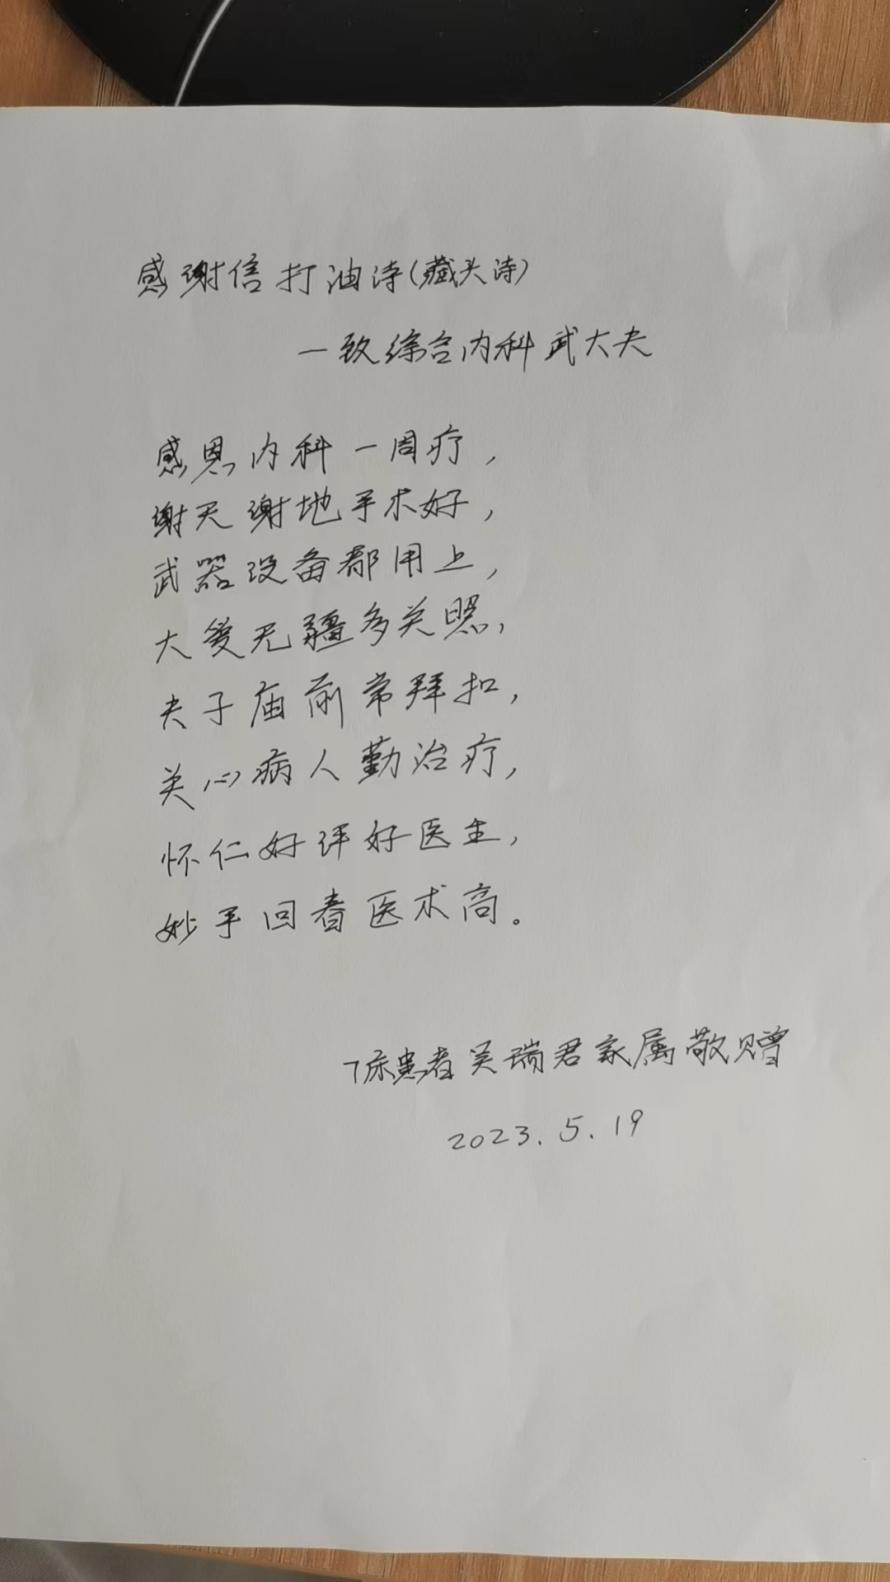 感谢信打油诗(藏头诗)
—致综合内科武大夫
感恩内科一周疗，
谢天谢地手术好，
武器设备都用上，
大爱无疆多关照，
夫子庙前常拜扣，
关心病人勤治疗，
怀仁好评好医生，
妙手回春医术高。
7床患者吴瑞君家属敬赠
2023.5.19